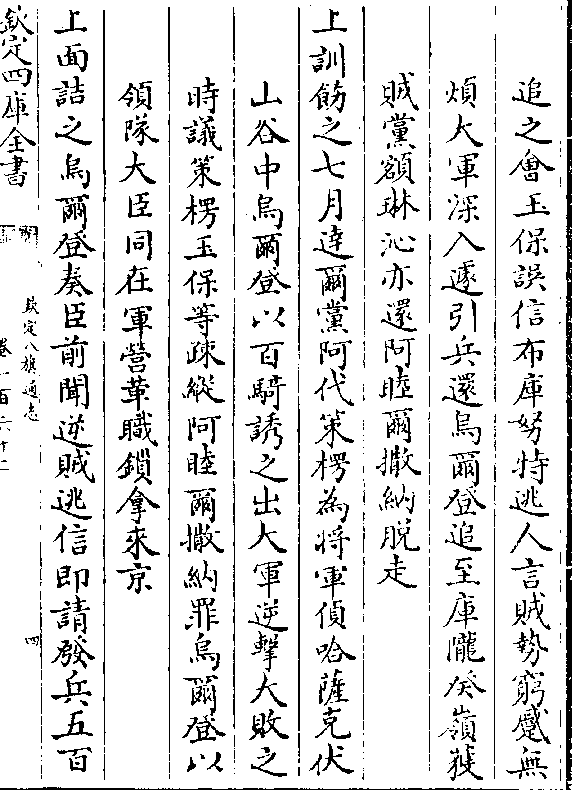 追之會玉保誤信布庫努特逃人言賊勢窮蹙無
煩大軍深入遽引兵還烏爾登追至庫隴癸嶺獲
賊黨額琳沁亦還阿睦爾撒納脱走
上訓飭之七月逹爾黨阿代策楞為将軍偵哈薩克伏
山谷中烏爾登以百騎誘之出大軍逆擊大敗之
時議策楞玉保等疎縱阿睦爾撒納罪烏爾登以
領隊大臣同在軍營革職鎖拿來京
上面詰之烏爾登奏臣前聞逆賊逃信即請發兵五百
欽定四庫全書
欽定八旗通志
卷一百六十二
四